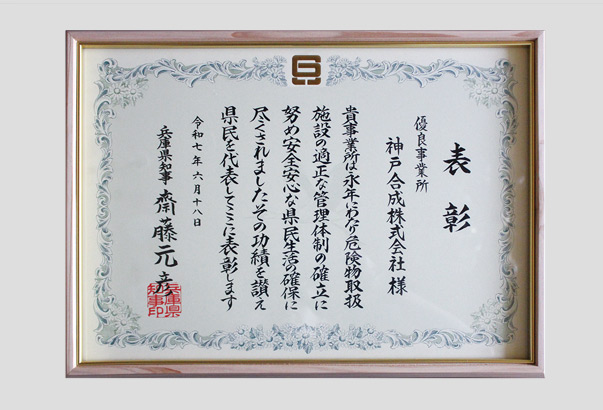 表彰
優良事業所
神戸合成株式会社 様
貴事業所は永年にわたり危険物取扱
施設の適正な管理体制の確立に
努め安全安心な県民生活の確保に
尽くされましたその功績を讃え
県民を代表してここに表彰します
令和七年六月十八日
兵庫県知事 齋藤元彦
兵庫県
知事印